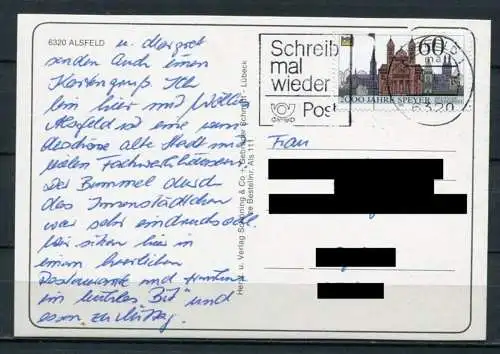 6320 ALSFELD
u. Margret
senden Auch einen
Kartengruß. Ich
bin hier mit
Alsfeld ist eine wun
derschöne alte Stadt mit
vielen Fachwerkhäusern
Der Bummel durch
das Innenstädtchen
war sehr eindrucksvoll.
Wir sitzen hier in
einem herrlichen
Restaurant und trinken
ein kühles Bit und
essen zu Mittag.
Schreib
mal
wieder
Post
60
2000 JAHRE SPEYER
6320
Herst. u. Verlag Schöning & Co + Gebrüder Schmidt - Lübeck
Bestellnr. Als 111
Frau